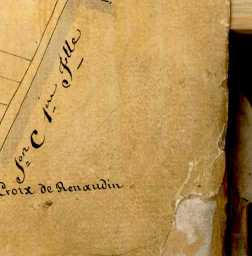 S.on C 1.ière Folle
Croix de Renaudin